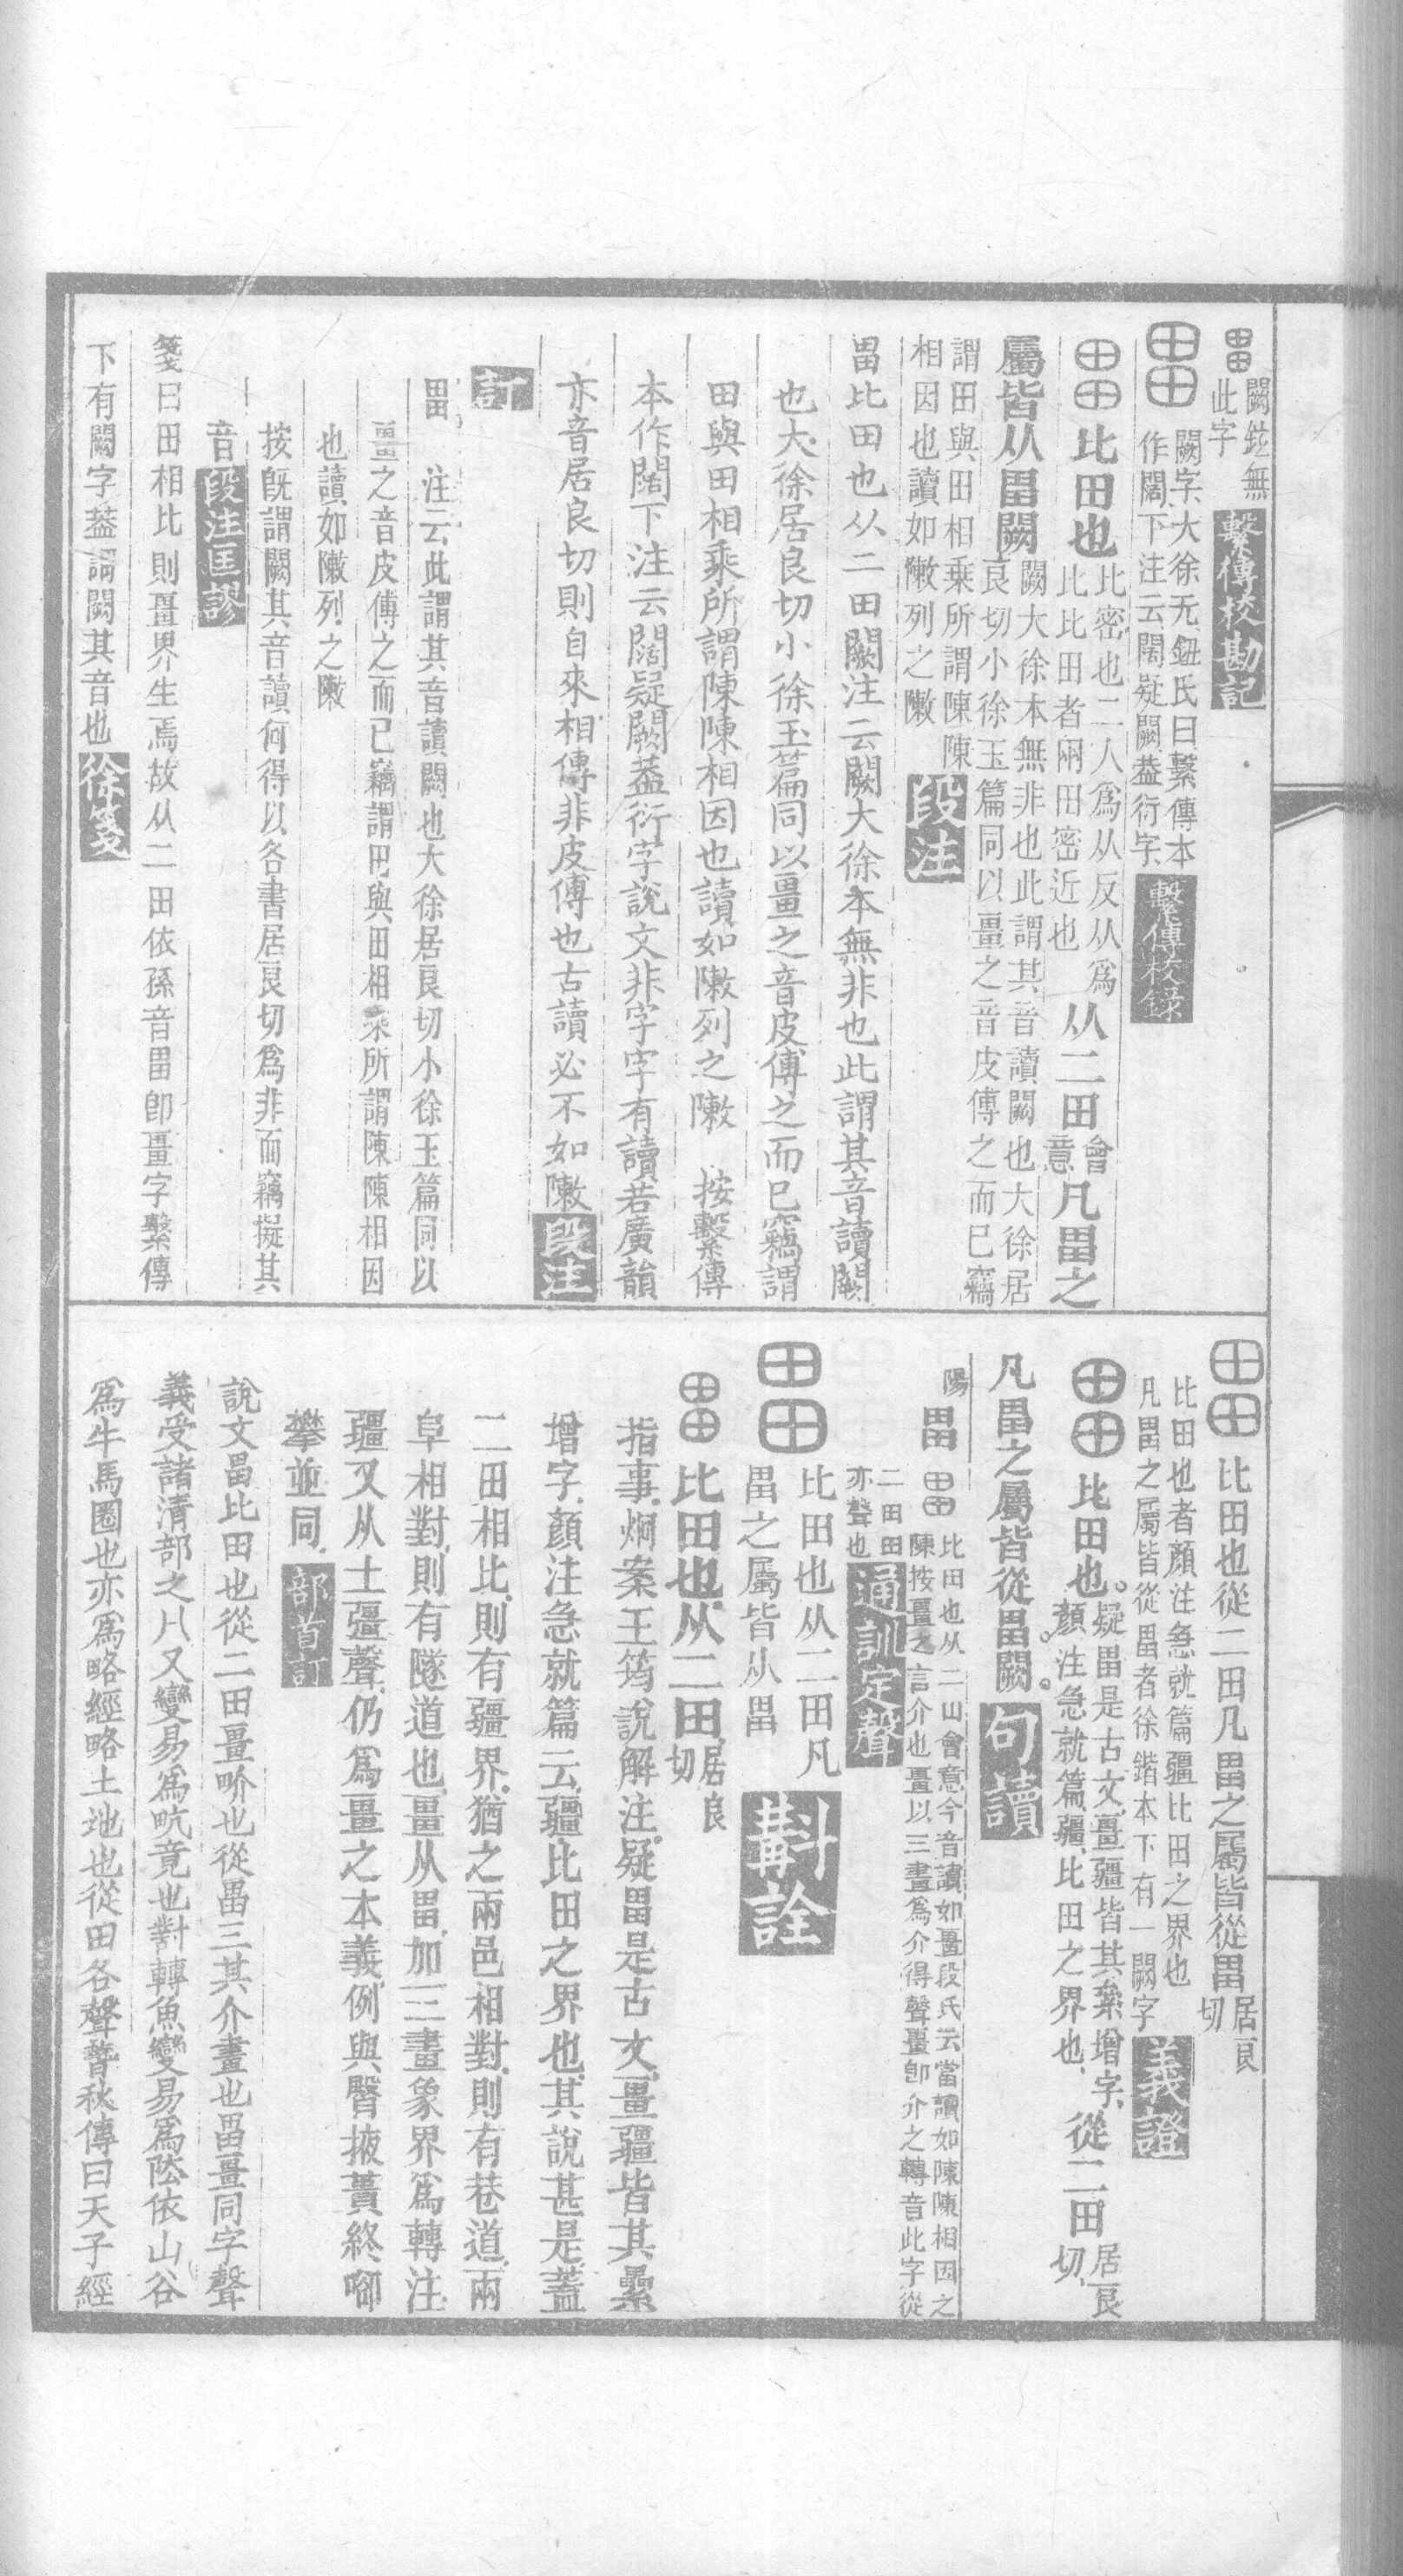 畕
闕鉉無
此字
繫傳校勘記
畕
闕字大徐无鈕氏曰繫傳本
作闊下注云闊疑闕葢衍字
繫傳校錄
畕比田也
比密也二人爲从反从爲
比比田者兩田密近也
从二田
會
意
凡畕之
屬皆从畕闕
闕大徐本無非也此謂其音讀闕也大徐居
良切小徐玉篇同以畺之音皮傅之而已竊
謂田與田相乗所謂陳陳
相因也讀如敶列之敶
段注
畕比田也从二田闕注云闕大徐本無非也此謂其音讀闕
也大徐居良切小徐玉篇同以畺之音皮傅之而已竊謂
田與田相乘所謂陳陳相因也讀如敶列之敶 按繫傳
本作闊下注云闊疑闕葢衍字說文非字字有讀若廣韻
亦音居良切則自來相傳非皮傅也古讀必不如敶
段注
訂
畕 注云此謂其音讀闕也大徐居良切小徐玉篇同以
畺之音皮傅之而已竊謂田與田相乘所謂陳陳相因
也讀如敶列之敶
按旣謂闕其音讀何得以各書居良切爲非而竊擬其
音
段注匡謬
箋曰田相比則畺界生焉故从二田依孫音畕卽畺字繫傳
下有闕字葢謂闕其音也
徐箋
畕比田也從二田凡畕之屬皆從畕
居良
切
比田也者顏注急就篇疆比田之界也
凡畕之屬皆從畕者徐鍇本下有一闕字
義證
畕比田也。
疑畕是古文畺疆皆其絫增字
顏注急就篇疆比田之界也
從二田
居良
切
凡畕之屬皆從畕。闕。
句讀
陽
畕
畕
比田也从二田會意今音讀如畺段氏云當讀如陳陳相因之
陳按畺之言介也畺以三畫爲介得聲畺卽介之轉音此字從
二田田
亦聲也
通訓定聲
畕
比田也从二田凡
畕之屬皆从畕
斠詮
畕比田也从二田
居良
切
指事炯案王筠說解注疑畕是古文畺疆皆其纍
增字顏注急就篇云疆比田之界也其說甚是蓋
二田相比則有疆界猶之兩邑相對則有巷道兩
阜相對則有隧道也畺从畕加三畫象界爲轉注
疆又从土彊聲仍爲畺之本義例與臂掖蕢終啣
攀並同
部首訂
說文畕比田也從二田畺畍也從畕三其介畫也畕畺同字聲
義受諸淸部之爿又變易爲畮竟也對轉魚變易爲阹依山谷
爲牛馬圈也亦爲略經略土地也從田各聲春秋傳曰天子經